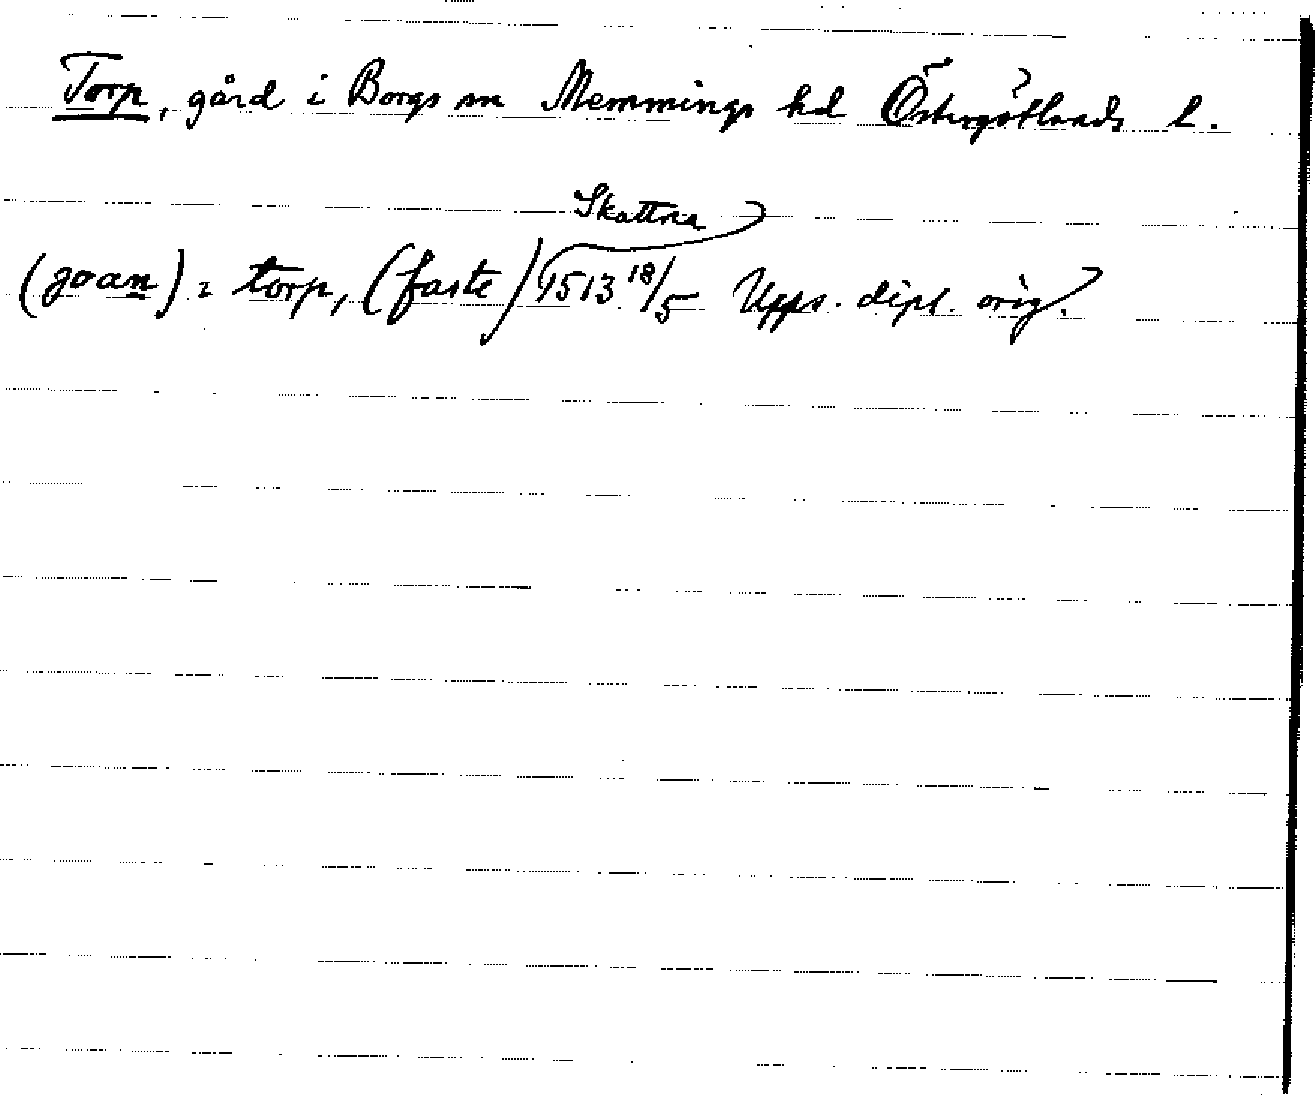 Torp, gård i Borgs sn Memmings hd Östergötlands l.
Skattna
(joan) i torp, (faste) 1513 18/5 Upps. dipl. orig.